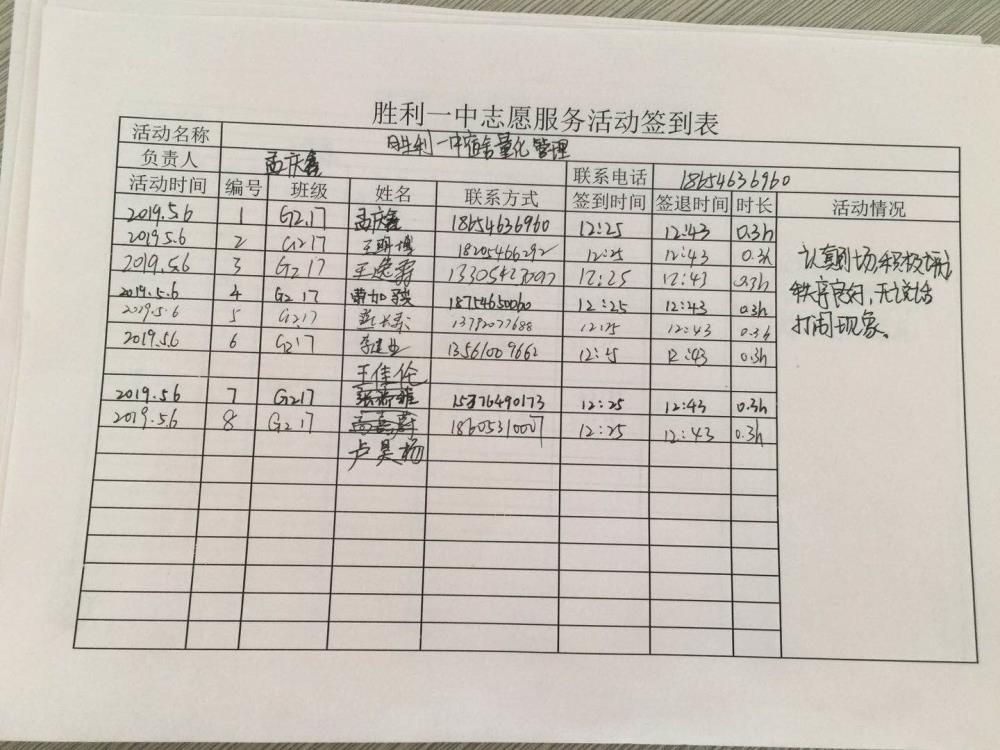 胜利一中志愿服务活动签到表
活动名称 胜利一中宿舍量化管理
负责人 孟庆鑫 联系电话 18654636960
活动时间 编号 班级 姓名 联系方式 签到时间 签退时间 时长 活动情况
2019.5.6 1 G217 孟庆鑫 18654636960 12:25 12:43 0.3h
2019.5.6 2 G217 王明博 18205466292 12:25 12:43 0.3h
2019.5.6 3 G217 12:25 12:43 0.3h
2019.5.6 4 G217 18754650060 12:25 12:43 0.3h
2019.5.6 5 G217 13792077688 12:25 12:43 0.3h
2019.5.6 6 G217 李建业 13561009662 12:43 0.3h
王佳伦
2019.5.6 7 G217 15376490173 12:25 12:43 0.3h
2019.5.6 8 G217 12:25 12:43 0.3h
卢昊杨
认真到场,积极
秩序良好,无说话
打闹现象。